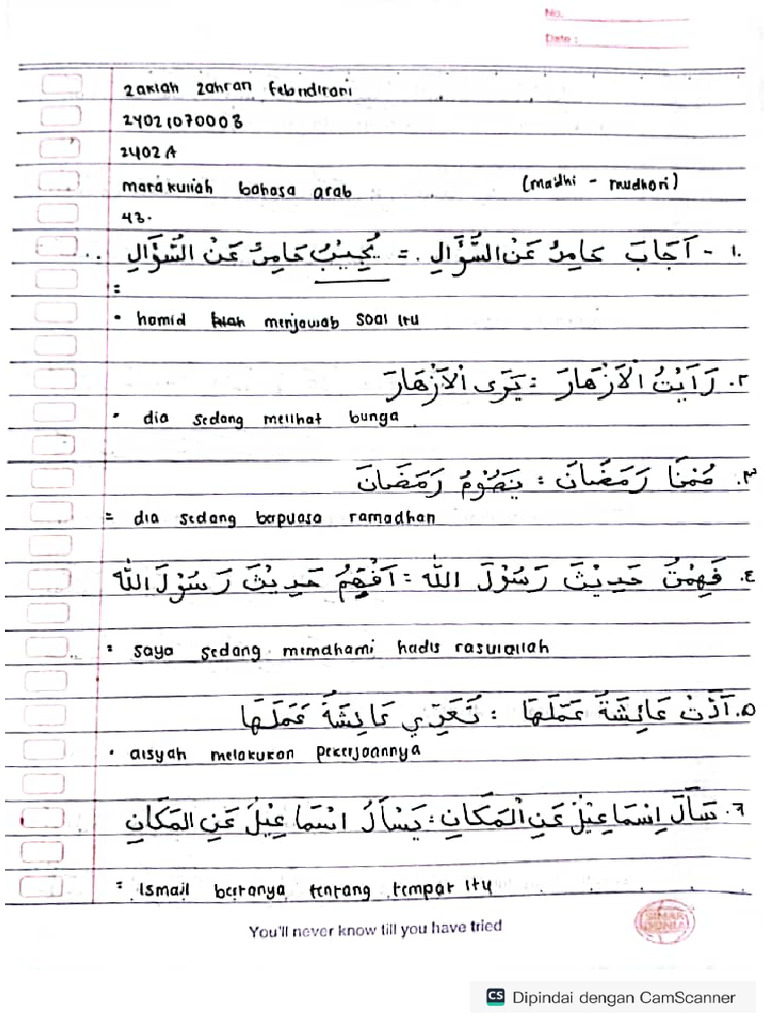 No.
Date :
zakiah zahran febndirani
24021070003
2402 A
mata kuliah bahasa arab (madhi - mudhori)
43.
١. - اَجَابَ حَامِدُ عَنْ السُّؤَالِ . = يُجِيْبُ حَامِدُ عَنْ السُّؤَالِ
=
• hamid menjawab soal itu
٢. رَاَيْتُ الْاَزْهَارَ : يَرَى الْاَزْهَارَ
• dia sedang melihat bunga
٣. صُمْنَا رَمَضَانَ : يَصُوْمُ رَمَضَانَ
= dia sedang berpuasa ramadhan
٤. فَهِمْتُ حَدِيْثَ رَسُوْلَ اللّٰه = اَفْهَمُ حَدِيْثَ رَسُوْلَ اللّٰه
: saya sedang memahami hadis rasulallah
٥. اَدَّتْ عَائِشَةُ عَمَلَهَا : عَائِشَةُ عَمَلَهَا
• aisyah melakukan pekerjaannya
٦. سَأَلَ اِسْمَاعِيْلُ عَنِ الْمَكَانِ : يَسْأَلُ اسْمَاعِيْلُ عَنِ المَكَانِ
= Ismail bertanya tentang tempat itu
You'll never know till you have tried
SINAR DUNIA
CS Dipindai dengan CamScanner